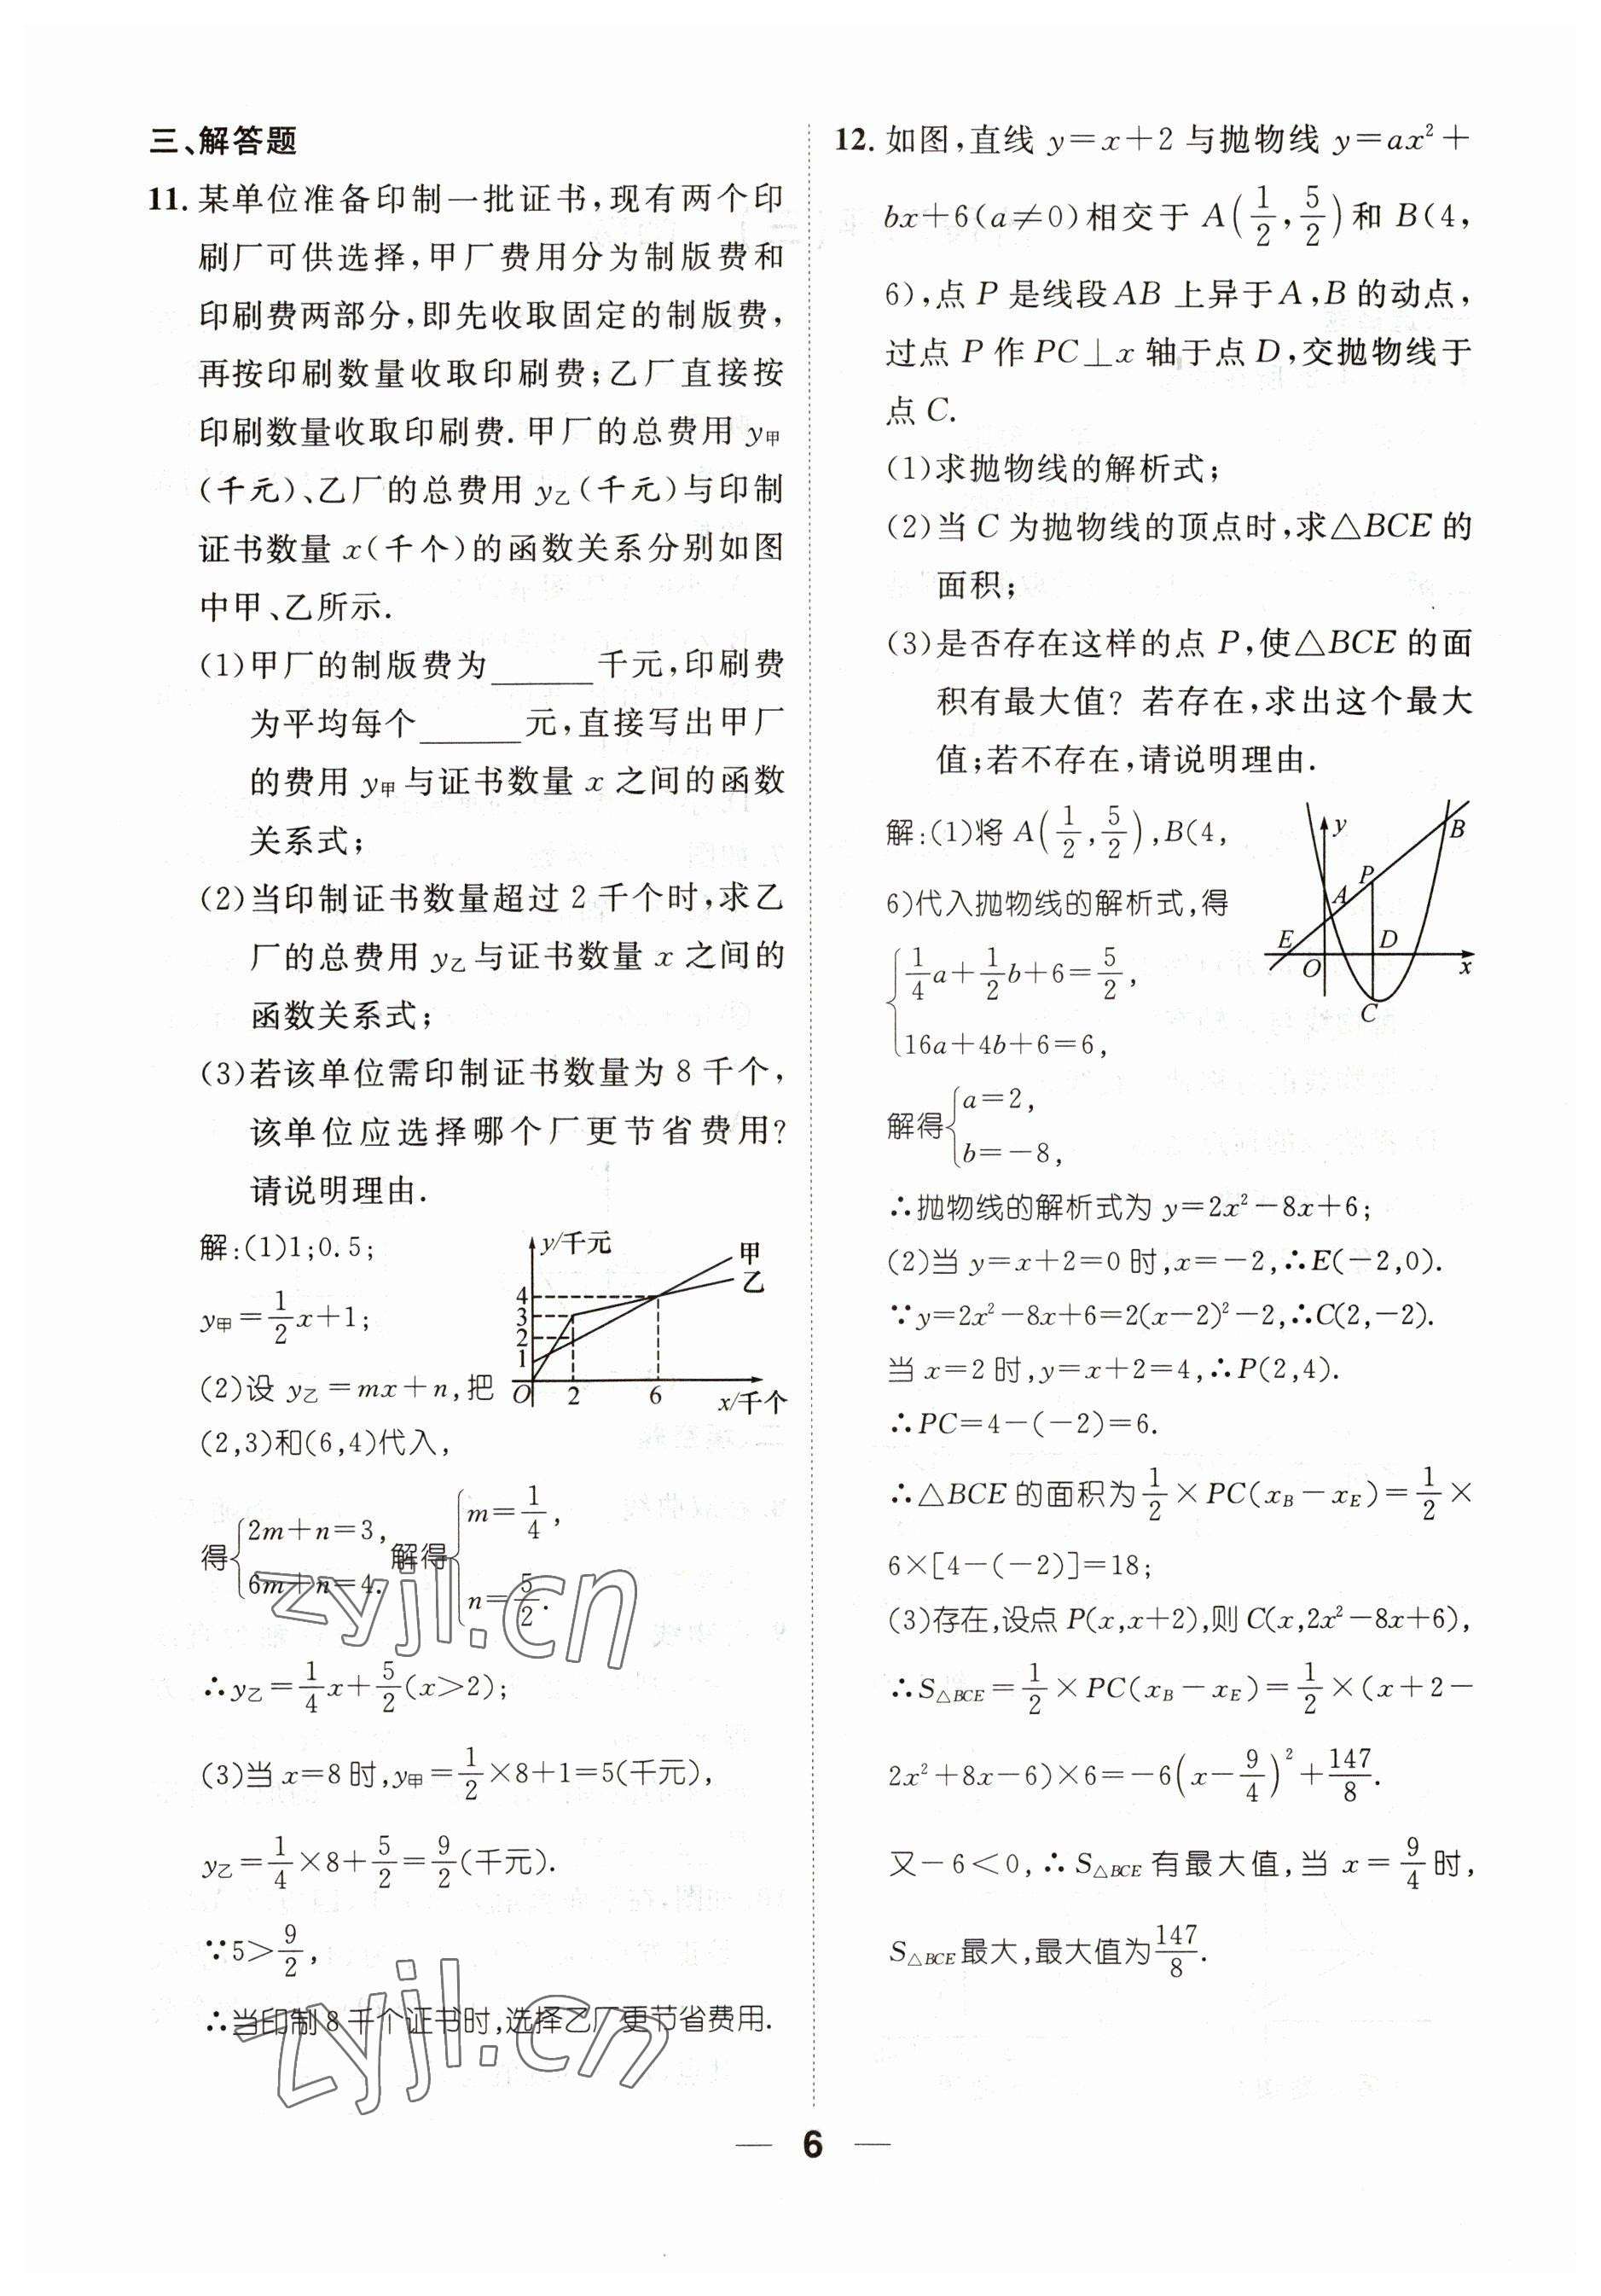 三、解答题
11. 某单位准备印制一批证书,现有两个印
刷厂可供选择,甲厂费用分为制版费和
印刷费两部分,即先收取固定的制版费,
再按印刷数量收取印刷费;乙厂直接按
印刷数量收取印刷费.甲厂的总费用 y甲
(千元)、乙厂的总费用 y乙(千元)与印制
证书数量 x(千个)的函数关系分别如图
中甲、乙所示.
(1)甲厂的制版费为______千元,印刷费
为平均每个______元,直接写出甲厂
的费用 y甲与证书数量 x 之间的函数
关系式;
(2)当印制证书数量超过 2 千个时,求乙
厂的总费用 y乙与证书数量 x 之间的
函数关系式;
(3)若该单位需印制证书数量为 8 千个,
该单位应选择哪个厂更节省费用?
请说明理由.
解:(1)1;0.5;
y甲=1/2x+1;
(2)设 y乙=mx+n,把
(2,3)和(6,4)代入,
得{2m+n=3, 6m+n=4. 解得{m=1/4, n=5/2.
∴y乙=1/4x+5/2(x>2);
(3)当 x=8 时,y甲=1/2×8+1=5(千元),
y乙=1/4×8+5/2=9/2(千元).
∵5>9/2,
∴当印制 8 千个证书时,选择乙厂更节省费用.
y/千元
甲
乙
4
3
2
1
O 2 6
x/千个
zyjl.cn
zyjl.cn
12. 如图,直线 y=x+2 与抛物线 y=ax²+
bx+6(a≠0)相交于 A(1/2,5/2)和 B(4,
6),点 P 是线段 AB 上异于 A,B 的动点,
过点 P 作 PC⊥x 轴于点 D,交抛物线于
点 C.
(1)求抛物线的解析式;
(2)当 C 为抛物线的顶点时,求△BCE 的
面积;
(3)是否存在这样的点 P,使△BCE 的面
积有最大值? 若存在,求出这个最大
值;若不存在,请说明理由.
解:(1)将 A(1/2,5/2),B(4,
6)代入抛物线的解析式,得
{1/4a+1/2b+6=5/2,
16a+4b+6=6,
解得{a=2,
b=-8,
y
B
P
A
E
D
O
x
C
∴抛物线的解析式为 y=2x²-8x+6;
(2)当 y=x+2=0 时,x=-2,∴E(-2,0).
∵y=2x²-8x+6=2(x-2)²-2,∴C(2,-2).
当 x=2 时,y=x+2=4,∴P(2,4).
∴PC=4-(-2)=6.
∴△BCE 的面积为1/2×PC(xB-xE)=1/2×
6×[4-(-2)]=18;
(3)存在,设点 P(x,x+2),则 C(x,2x²-8x+6),
∴S△BCE=1/2×PC(xB-xE)=1/2×(x+2-
2x²+8x-6)×6=-6(x-9/4)²+147/8.
又-6<0,∴S△BCE有最大值,当 x=9/4时,
S△BCE最大,最大值为147/8.
— 6 —